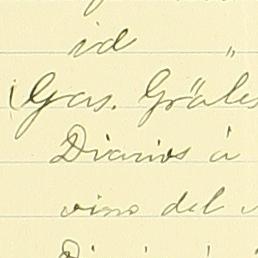 id "
Gas. Gräles
Diarios á
vino del